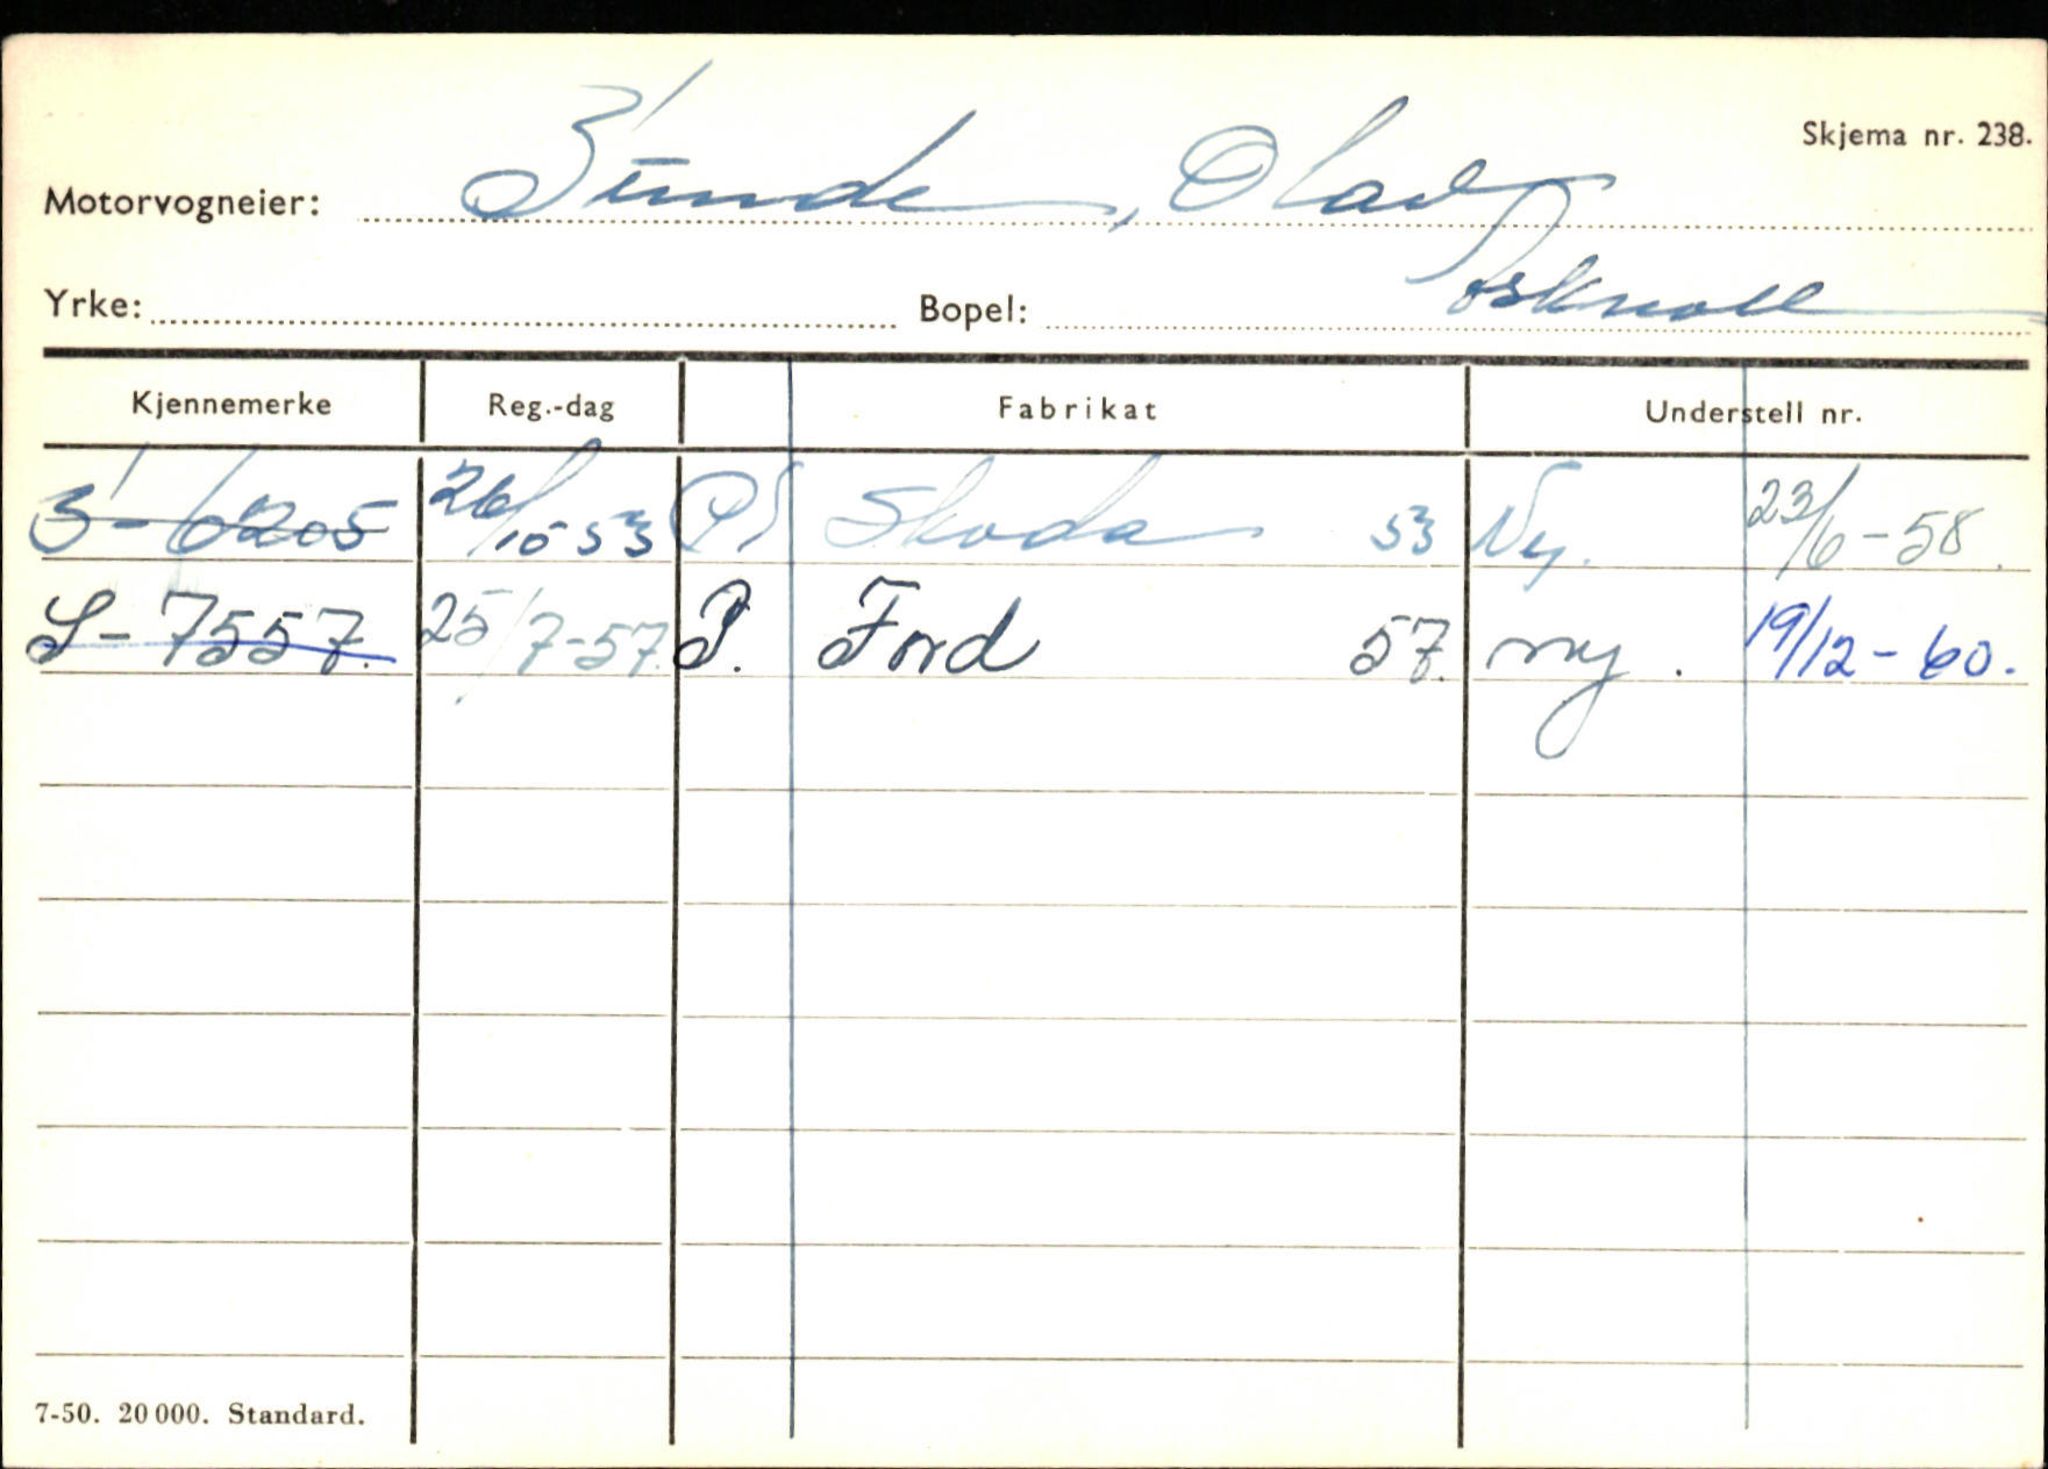 Skjema nr. 238.
Motorvogneier: Sunde, Olav
Yrke: Bopel: Askvoll
Kjennemerke Reg.-dag Fabrikat Understell nr.
S-6205 26/10 53 P. Skoda 53 Ny. 23/6-58.
S-7557. 25/7-57. P. Ford 57. ny. 19/12-60.
7-50. 20 000. Standard.